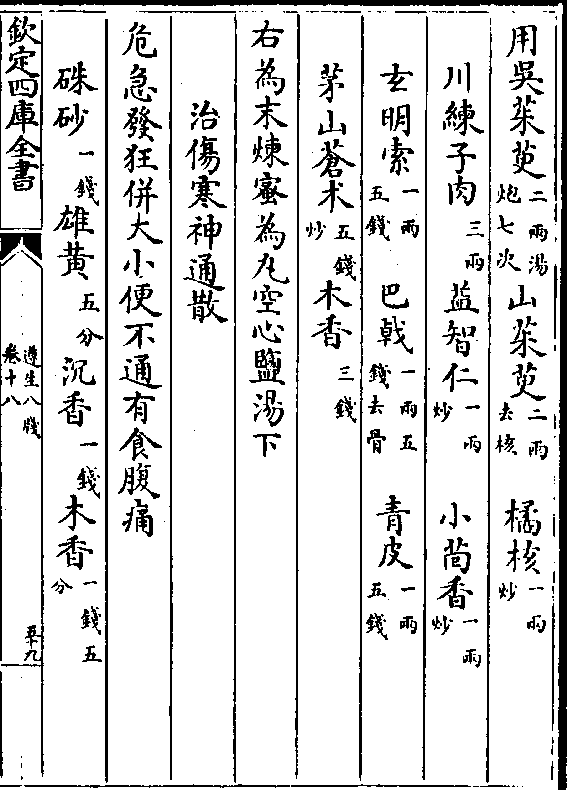 用吳茱萸二兩湯炮七次山茱萸二兩去核橘核一兩炒
川練子肉三兩益智仁一兩炒小茴香一兩炒
玄明索一兩五錢巴戟一兩五錢去骨青皮一兩五錢
茅山蒼术五錢炒木香三錢
右為末煉蜜為丸空心鹽湯下
治傷寒神通散
危急發狂併大小便不通有食腹痛
硃砂一錢雄黃五分沉香一錢木香一錢五分
欽定四庫全書
遵生八牋
卷十八
五十九